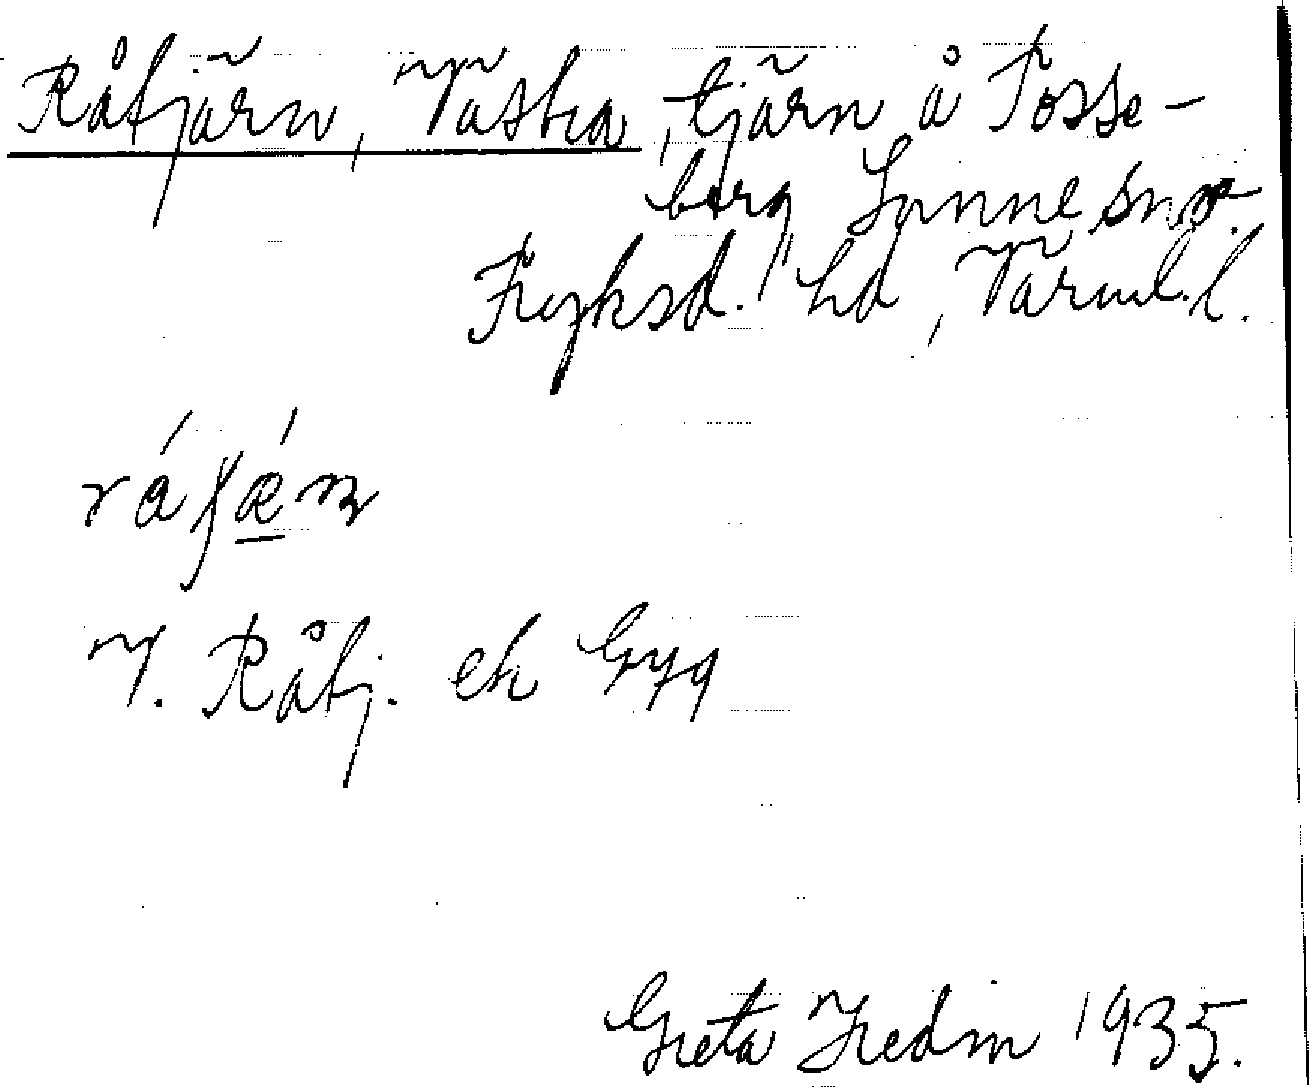 Råtjärn, Västra, tjärn å Fosse-
berg Sunne snr.
Fryksd. hd, Värml. l.
V. Råtj. ek Gyg
Greta Hedin 1935.